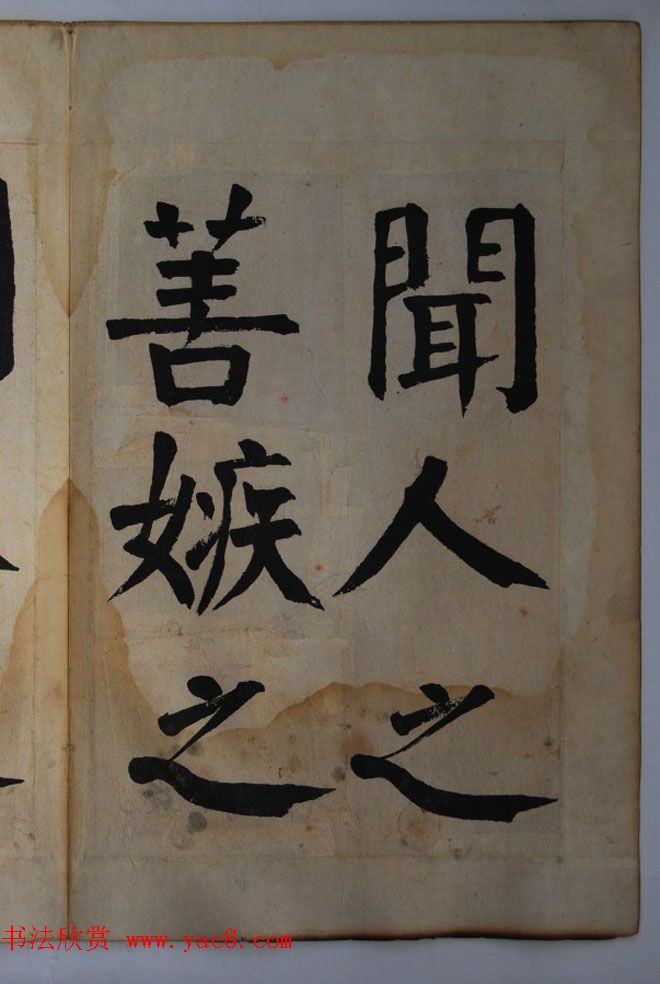 聞人之
善嫉之
书法欣赏 www.yac8.com